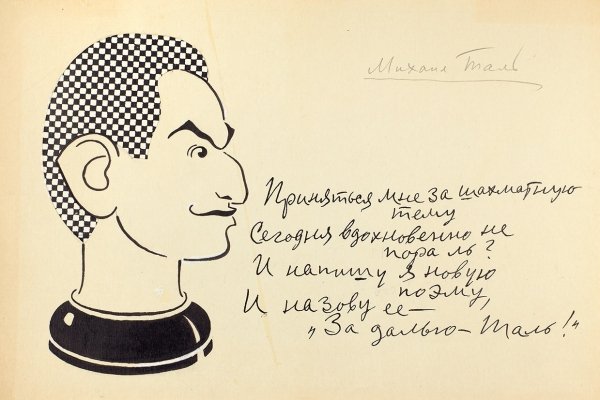 Михаил Таль
Приняться мне за шахматную
тему
Сегодня вдохновенно не
пора ль?
И напишу я новую
поэму,
И назову ее —
„За далью — Таль!“